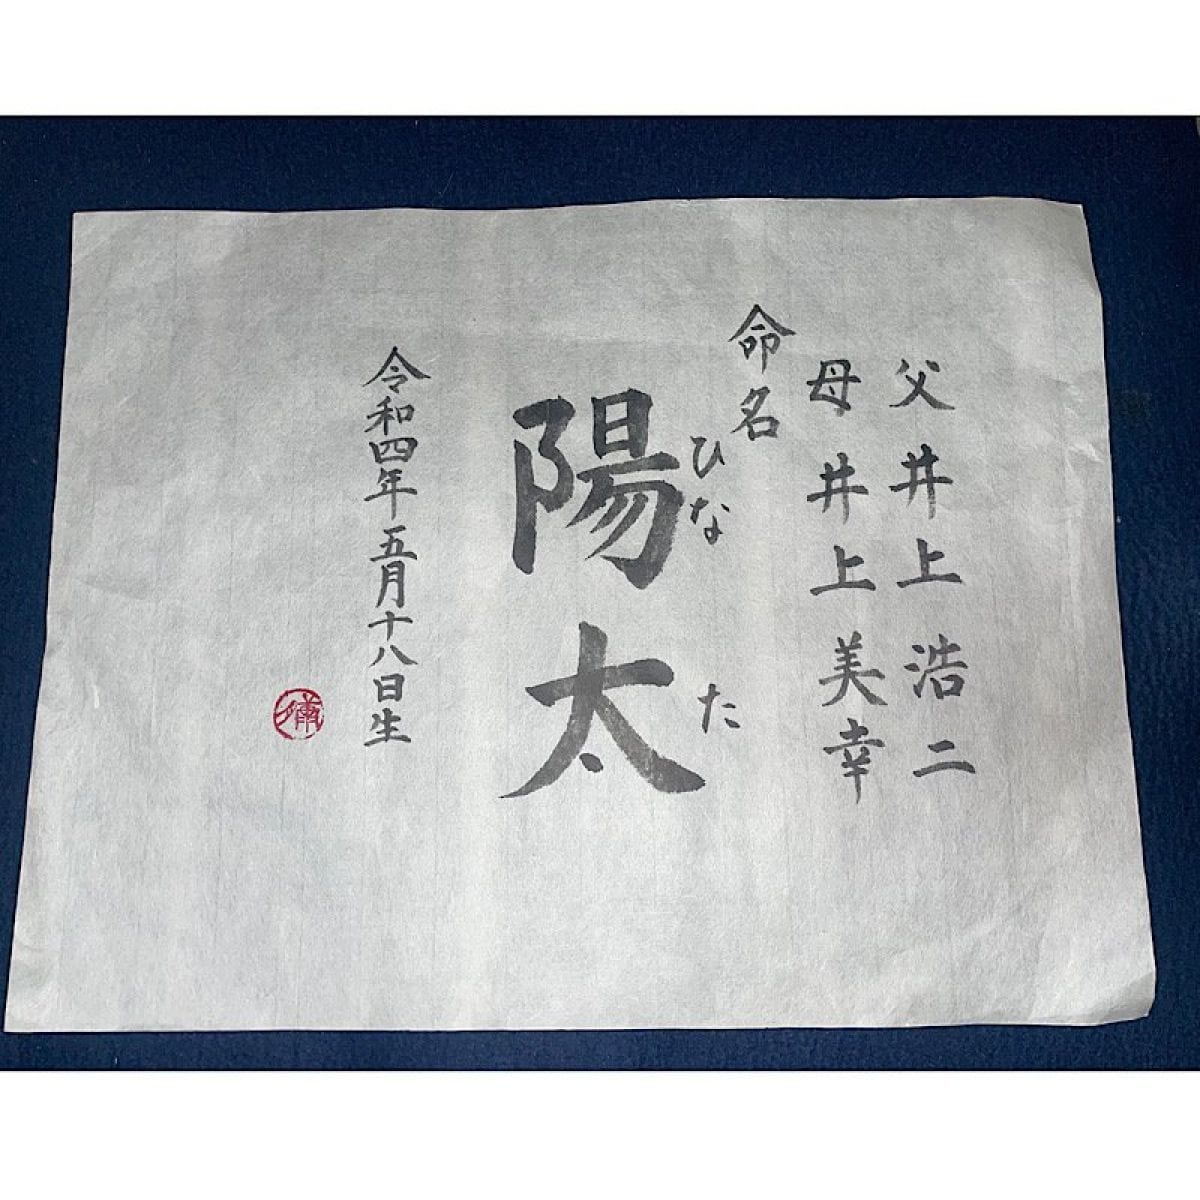 父 井上 浩二
母 井上 美幸
命名
ひなた
陽太
令和四年五月十八日生